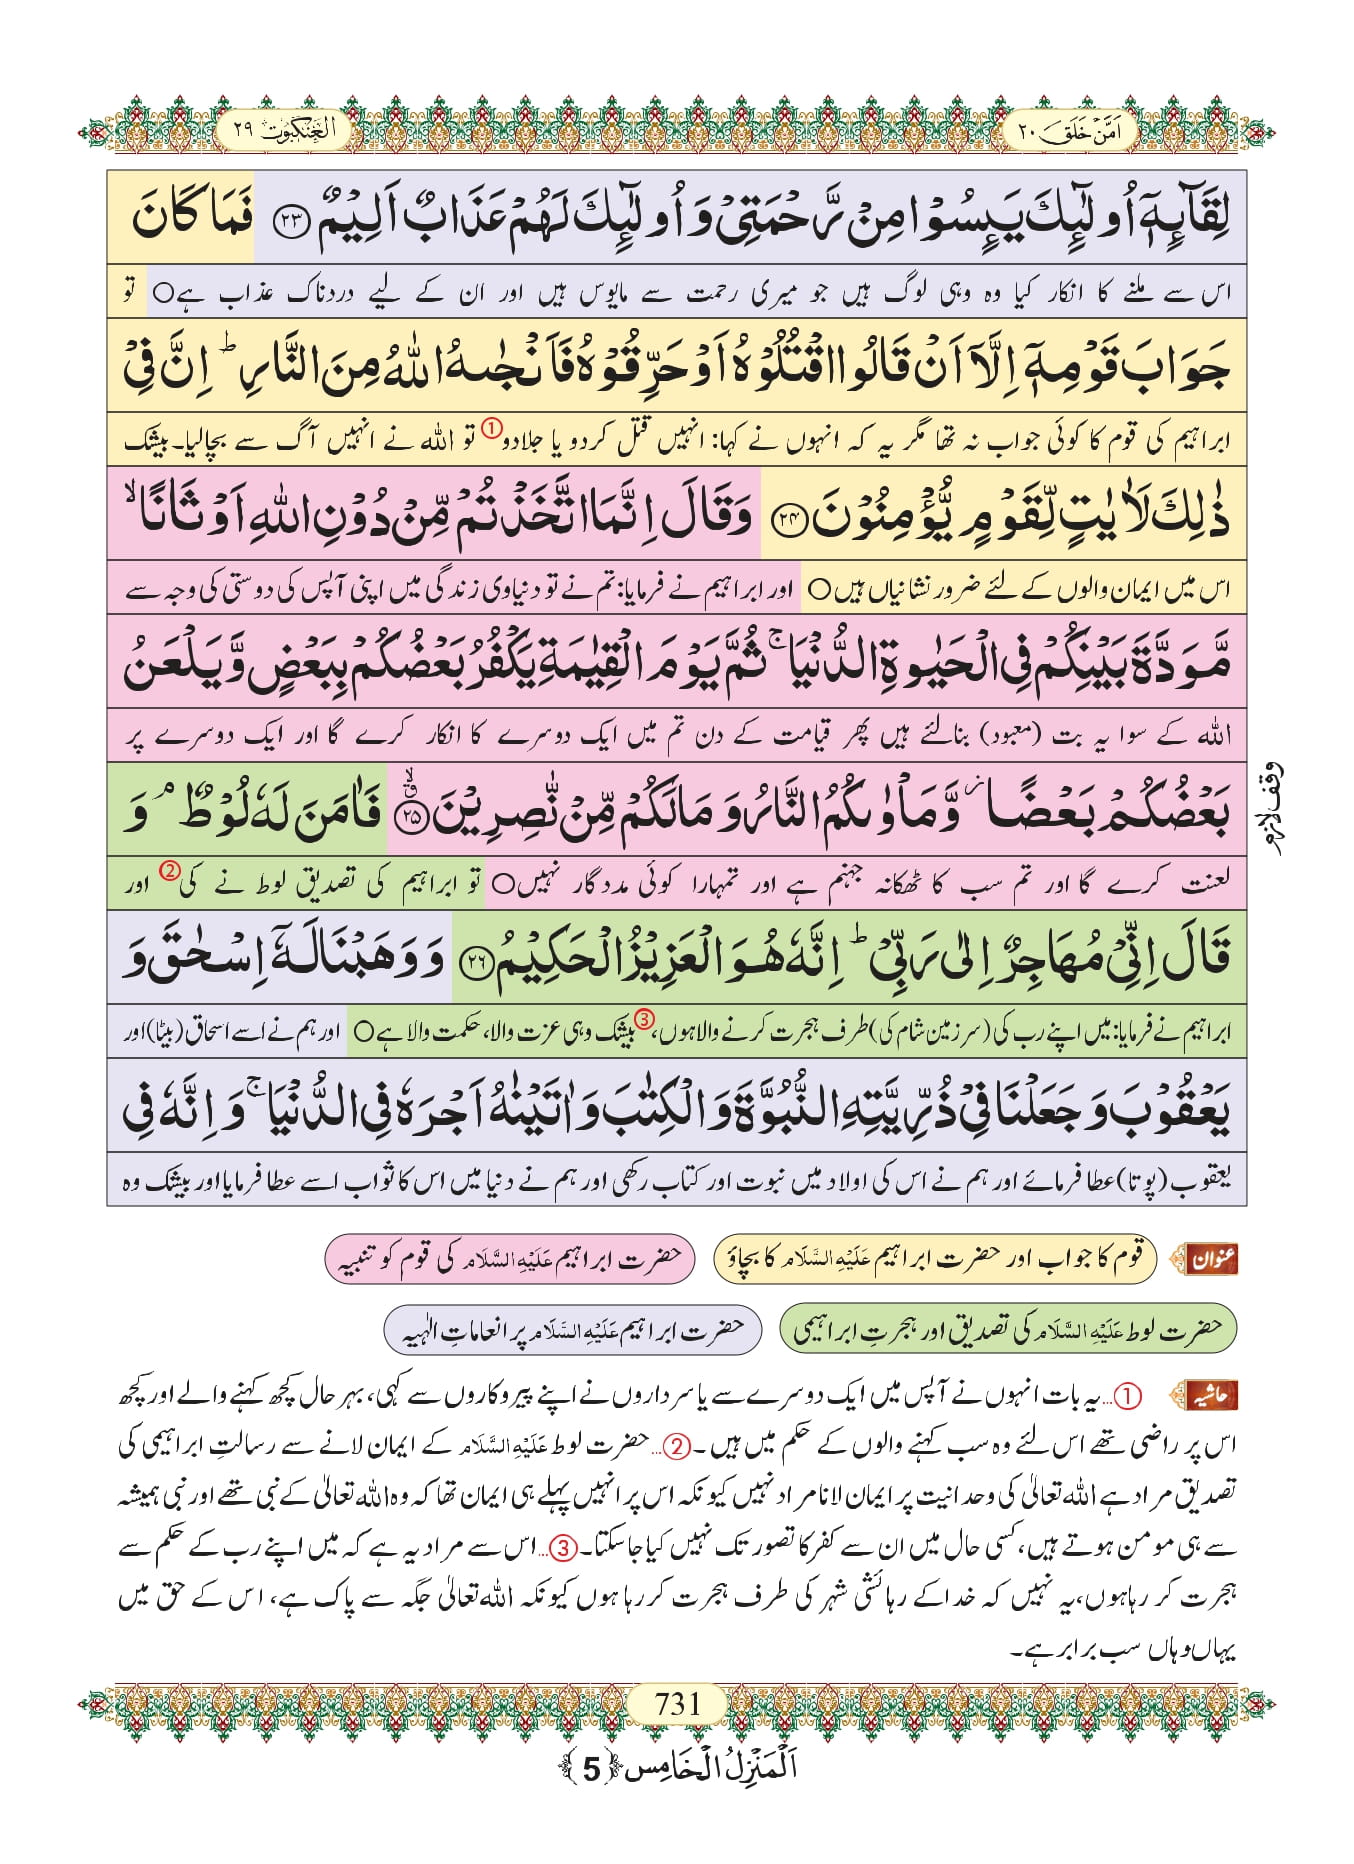 اَمَّنْ خَلَقَ ۲۰
الْعَنْكَبُوْت ۲۹
لِقَآىِٕهٖۤ اُولٰٓىِٕكَ یَىِٕسُوْا مِنْ رَّحْمَتِیْ وَ اُولٰٓىِٕكَ لَهُمْ عَذَابٌ اَلِیْمٌ ﴿۲۳﴾ فَمَا كَانَ
اس سے ملنے کا انکار کیا وہ وہی لوگ ہیں جو میری رحمت سے مایوس ہیں اور ان کے لیے دردناک عذاب ہے○ تو
جَوَابَ قَوْمِهٖۤ اِلَّاۤ اَنْ قَالُوا اقْتُلُوْهُ اَوْ حَرِّقُوْهُ فَاَنْجٰىهُ اللّٰهُ مِنَ النَّارِ ؕ اِنَّ فِیْ
ابراہیم کی قوم کا کوئی جواب نہ تھا مگر یہ کہ انہوں نے کہا: انہیں قتل کردو یا جلادو① تو اللہ نے انہیں آگ سے بچالیا۔ بیشک
ذٰلِكَ لَاٰیٰتٍ لِّقَوْمٍ یُّؤْمِنُوْنَ ﴿۲۴﴾ وَ قَالَ اِنَّمَا اتَّخَذْتُمْ مِّنْ دُوْنِ اللّٰهِ اَوْثَانًا ۙ
اس میں ایمان والوں کے لئے ضرور نشانیاں ہیں○ اور ابراہیم نے فرمایا: تم نے تو دنیاوی زندگی میں اپنی آپس کی دوستی کی وجہ سے
مَّوَدَّةَ بَیْنِكُمْ فِی الْحَیٰوةِ الدُّنْیَا ۚ ثُمَّ یَوْمَ الْقِیٰمَةِ یَكْفُرُ بَعْضُكُمْ بِبَعْضٍ وَّ یَلْعَنُ
اللہ کے سوا یہ بت (معبود) بنالئے ہیں پھر قیامت کے دن تم میں ایک دوسرے کا انکار کرے گا اور ایک دوسرے پر
بَعْضُكُمْ بَعْضًا ؗ وَّ مَاْوٰىكُمُ النَّارُ وَ مَا لَكُمْ مِّنْ نّٰصِرِیْنَ ﴿۲۵﴾ۗۙ فَاٰمَنَ لَهٗ لُوْطٌ ۘ وَ
وقف لازم
لعنت کرے گا اور تم سب کا ٹھکانہ جہنم ہے اور تمہارا کوئی مددگار نہیں○ تو ابراہیم کی تصدیق لوط نے کی② اور
قَالَ اِنِّیْ مُهَاجِرٌ اِلٰى رَبِّیْ ؕ اِنَّهٗ هُوَ الْعَزِیْزُ الْحَكِیْمُ ﴿۲۶﴾ وَ وَهَبْنَا لَهٗۤ اِسْحٰقَ وَ
ابراہیم نے فرمایا: میں اپنے رب کی (سرزمین شام کی) طرف ہجرت کرنے والا ہوں،③ بیشک وہی عزت والا، حکمت والا ہے○ اور ہم نے اسے اسحاق (بیٹا) اور
یَعْقُوْبَ وَ جَعَلْنَا فِیْ ذُرِّیَّتِهِ النُّبُوَّةَ وَ الْكِتٰبَ وَ اٰتَیْنٰهُ اَجْرَهٗ فِی الدُّنْیَا ۚ وَ اِنَّهٗ فِی
یعقوب (پوتا) عطا فرمائے اور ہم نے اس کی اولاد میں نبوت اور کتاب رکھی اور ہم نے دنیا میں اس کا ثواب اسے عطا فرمایا اور بیشک وہ
عنوان قوم کا جواب اور حضرت ابراہیم عَلَیْهِ السَّلَام کا بچاؤ حضرت ابراہیم عَلَیْهِ السَّلَام کی قوم کو تنبیہ
حضرت لوط عَلَیْهِ السَّلَام کی تصدیق اور ہجرتِ ابراہیمی حضرت ابراہیم عَلَیْهِ السَّلَام پر انعاماتِ الٰہیہ
حاشیہ ①...یہ بات انہوں نے آپس میں ایک دوسرے سے یا سرداروں نے اپنے پیروکاروں سے کہی، بہر حال کچھ کہنے والے اور کچھ
اس پر راضی تھے اس لئے وہ سب کہنے والوں کے حکم میں ہیں۔ ②...حضرت لوط عَلَیْهِ السَّلَام کے ایمان لانے سے رسالتِ ابراہیمی کی
تصدیق مراد ہے اللہ تعالیٰ کی وحدانیت پر ایمان لانا مراد نہیں کیونکہ اس پر انہیں پہلے ہی ایمان تھا کہ وہ اللہ تعالیٰ کے نبی تھے اور نبی ہمیشہ
سے ہی مومن ہوتے ہیں، کسی حال میں ان سے کفر کا تصور تک نہیں کیا جاسکتا۔ ③...اس سے مراد یہ ہے کہ میں اپنے رب کے حکم سے
ہجرت کر رہا ہوں، یہ نہیں کہ خدا کے رہائشی شہر کی طرف ہجرت کر رہا ہوں کیونکہ اللہ تعالیٰ جگہ سے پاک ہے، اس کے حق میں
یہاں وہاں سب برابر ہے۔
731
اَلْمَنْزِلُ الْخَامِس ﴿5﴾